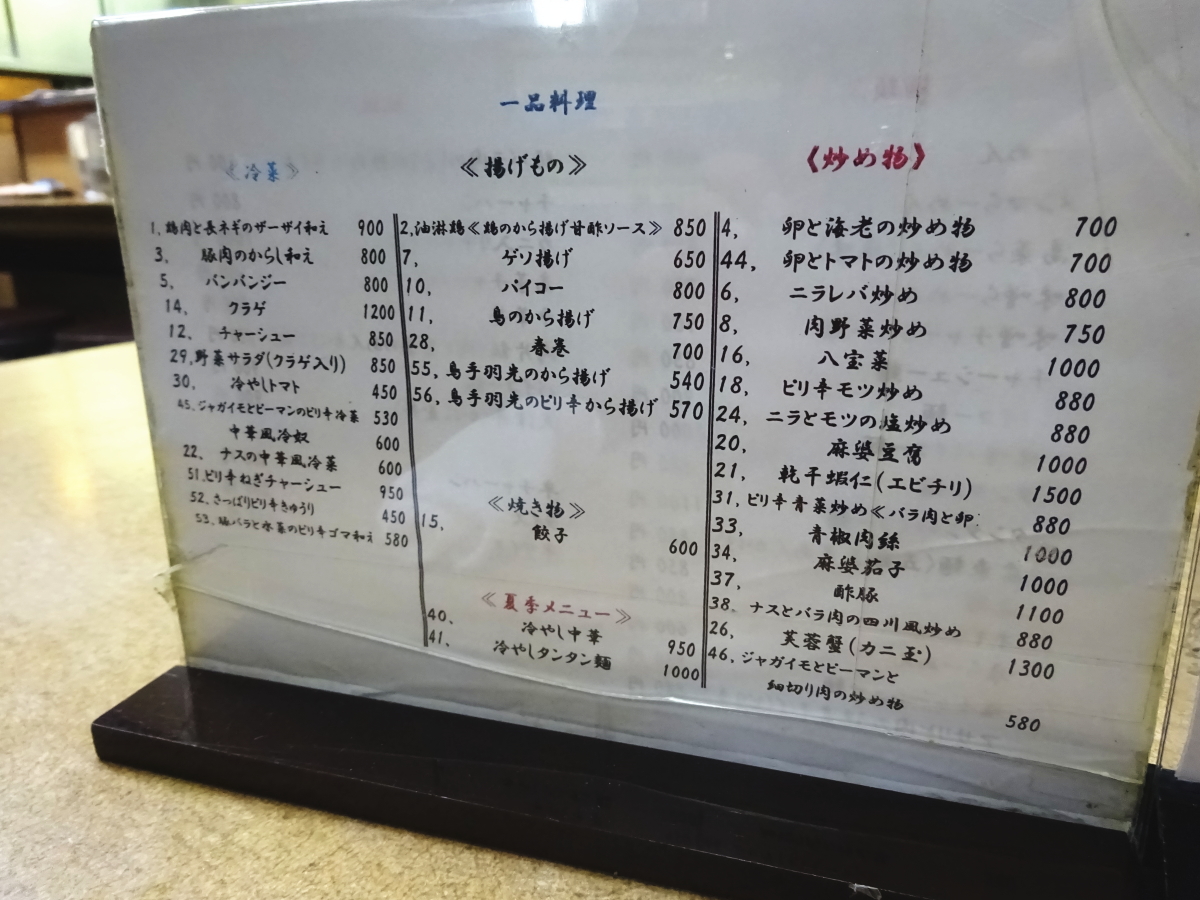 一品料理
≪冷菜≫
1, 鶏肉と長ネギのザーサイ和え 900
3、 豚肉のからし和え 800
5、 バンバンジー 800
14、 クラゲ 1200
12、 チャーシュー 850
29,野菜サラダ(クラゲ入り) 850
30、 冷やしトマト 450
45.ジャガイモとピーマンのピリ辛冷菜 530
中華風冷奴 600
22、 ナスの中華風冷菜 600
51.ピリ辛ねぎチャーシュー 950
52、さっぱりピリ辛きゅうり 450
53、豚バラと水菜のピリ辛ゴマ和え 580
≪揚げもの≫
2,油淋鶏≪鶏のから揚げ甘酢ソース≫ 850
7, ゲソ揚げ 650
10, パイコー 800
11, 鳥のから揚げ 750
28, 春巻 700
55, 鳥手羽先のから揚げ 540
56, 鳥手羽先のピリ辛から揚げ 570
≪焼き物≫
15, 餃子 600
≪夏季メニュー≫
40、 冷やし中華 950
41、 冷やしタンタン麺 1000
《炒め物》
4, 卵と海老の炒め物 700
44, 卵とトマトの炒め物 700
6, ニラレバ炒め 800
8, 肉野菜炒め 750
16, 八宝菜 1000
18, ピリ辛モツ炒め 880
24, ニラとモツの塩炒め 880
20, 麻婆豆腐 1000
21, 乾干蝦仁(エビチリ) 1500
31,ピリ辛青菜炒め≪バラ肉と卵 880
33, 青椒肉絲 1000
34, 麻婆茄子 1000
37, 酢豚 1100
38, ナスとバラ肉の四川風炒め 880
26, 芙蓉蟹(カニ玉) 1300
46,ジャガイモとピーマンと
細切り肉の炒め物 580